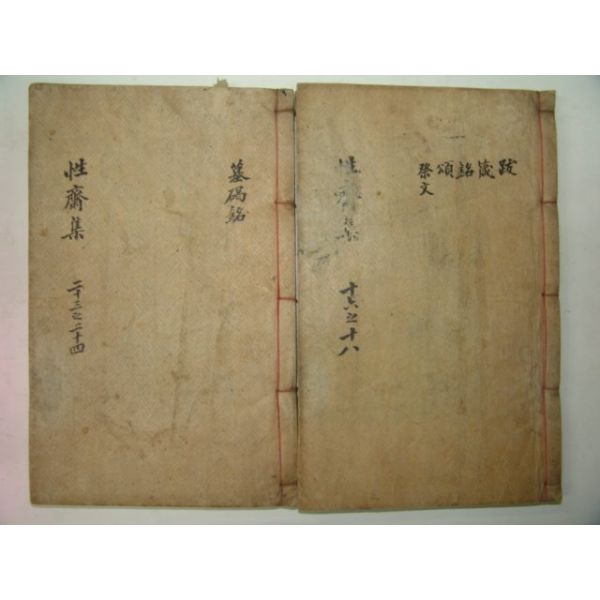 跋箴銘頌
祭文
性齋集 十六之十八
墓碣銘
性齋集 二十三之二十四